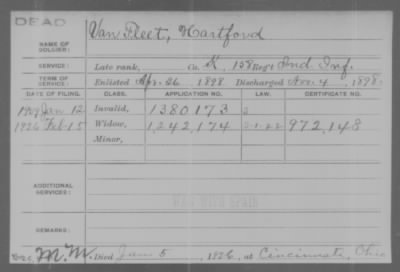 DEAD
NAME OF SOLDIER: Van Fleet, Hartford
SERVICE: Late rank, Co. K, 158 Reg't Ind Inf.
TERM OF SERVICE: Enlisted Apr. 26, 1898 Discharged Nov. 4, 1898
DATE OF FILING. CLASS. APPLICATION NO. LAW. CERTIFICATE NO.
1909 Jan 12 Invalid, 1380173
1926 Feb-15 Widow, 1,242,174 972,148
Minor,
ADDITIONAL SERVICES:
WAR WITH SPAIN
REMARKS:
M.M. Died Jan 5, 1926, at Cincinnati, Ohio